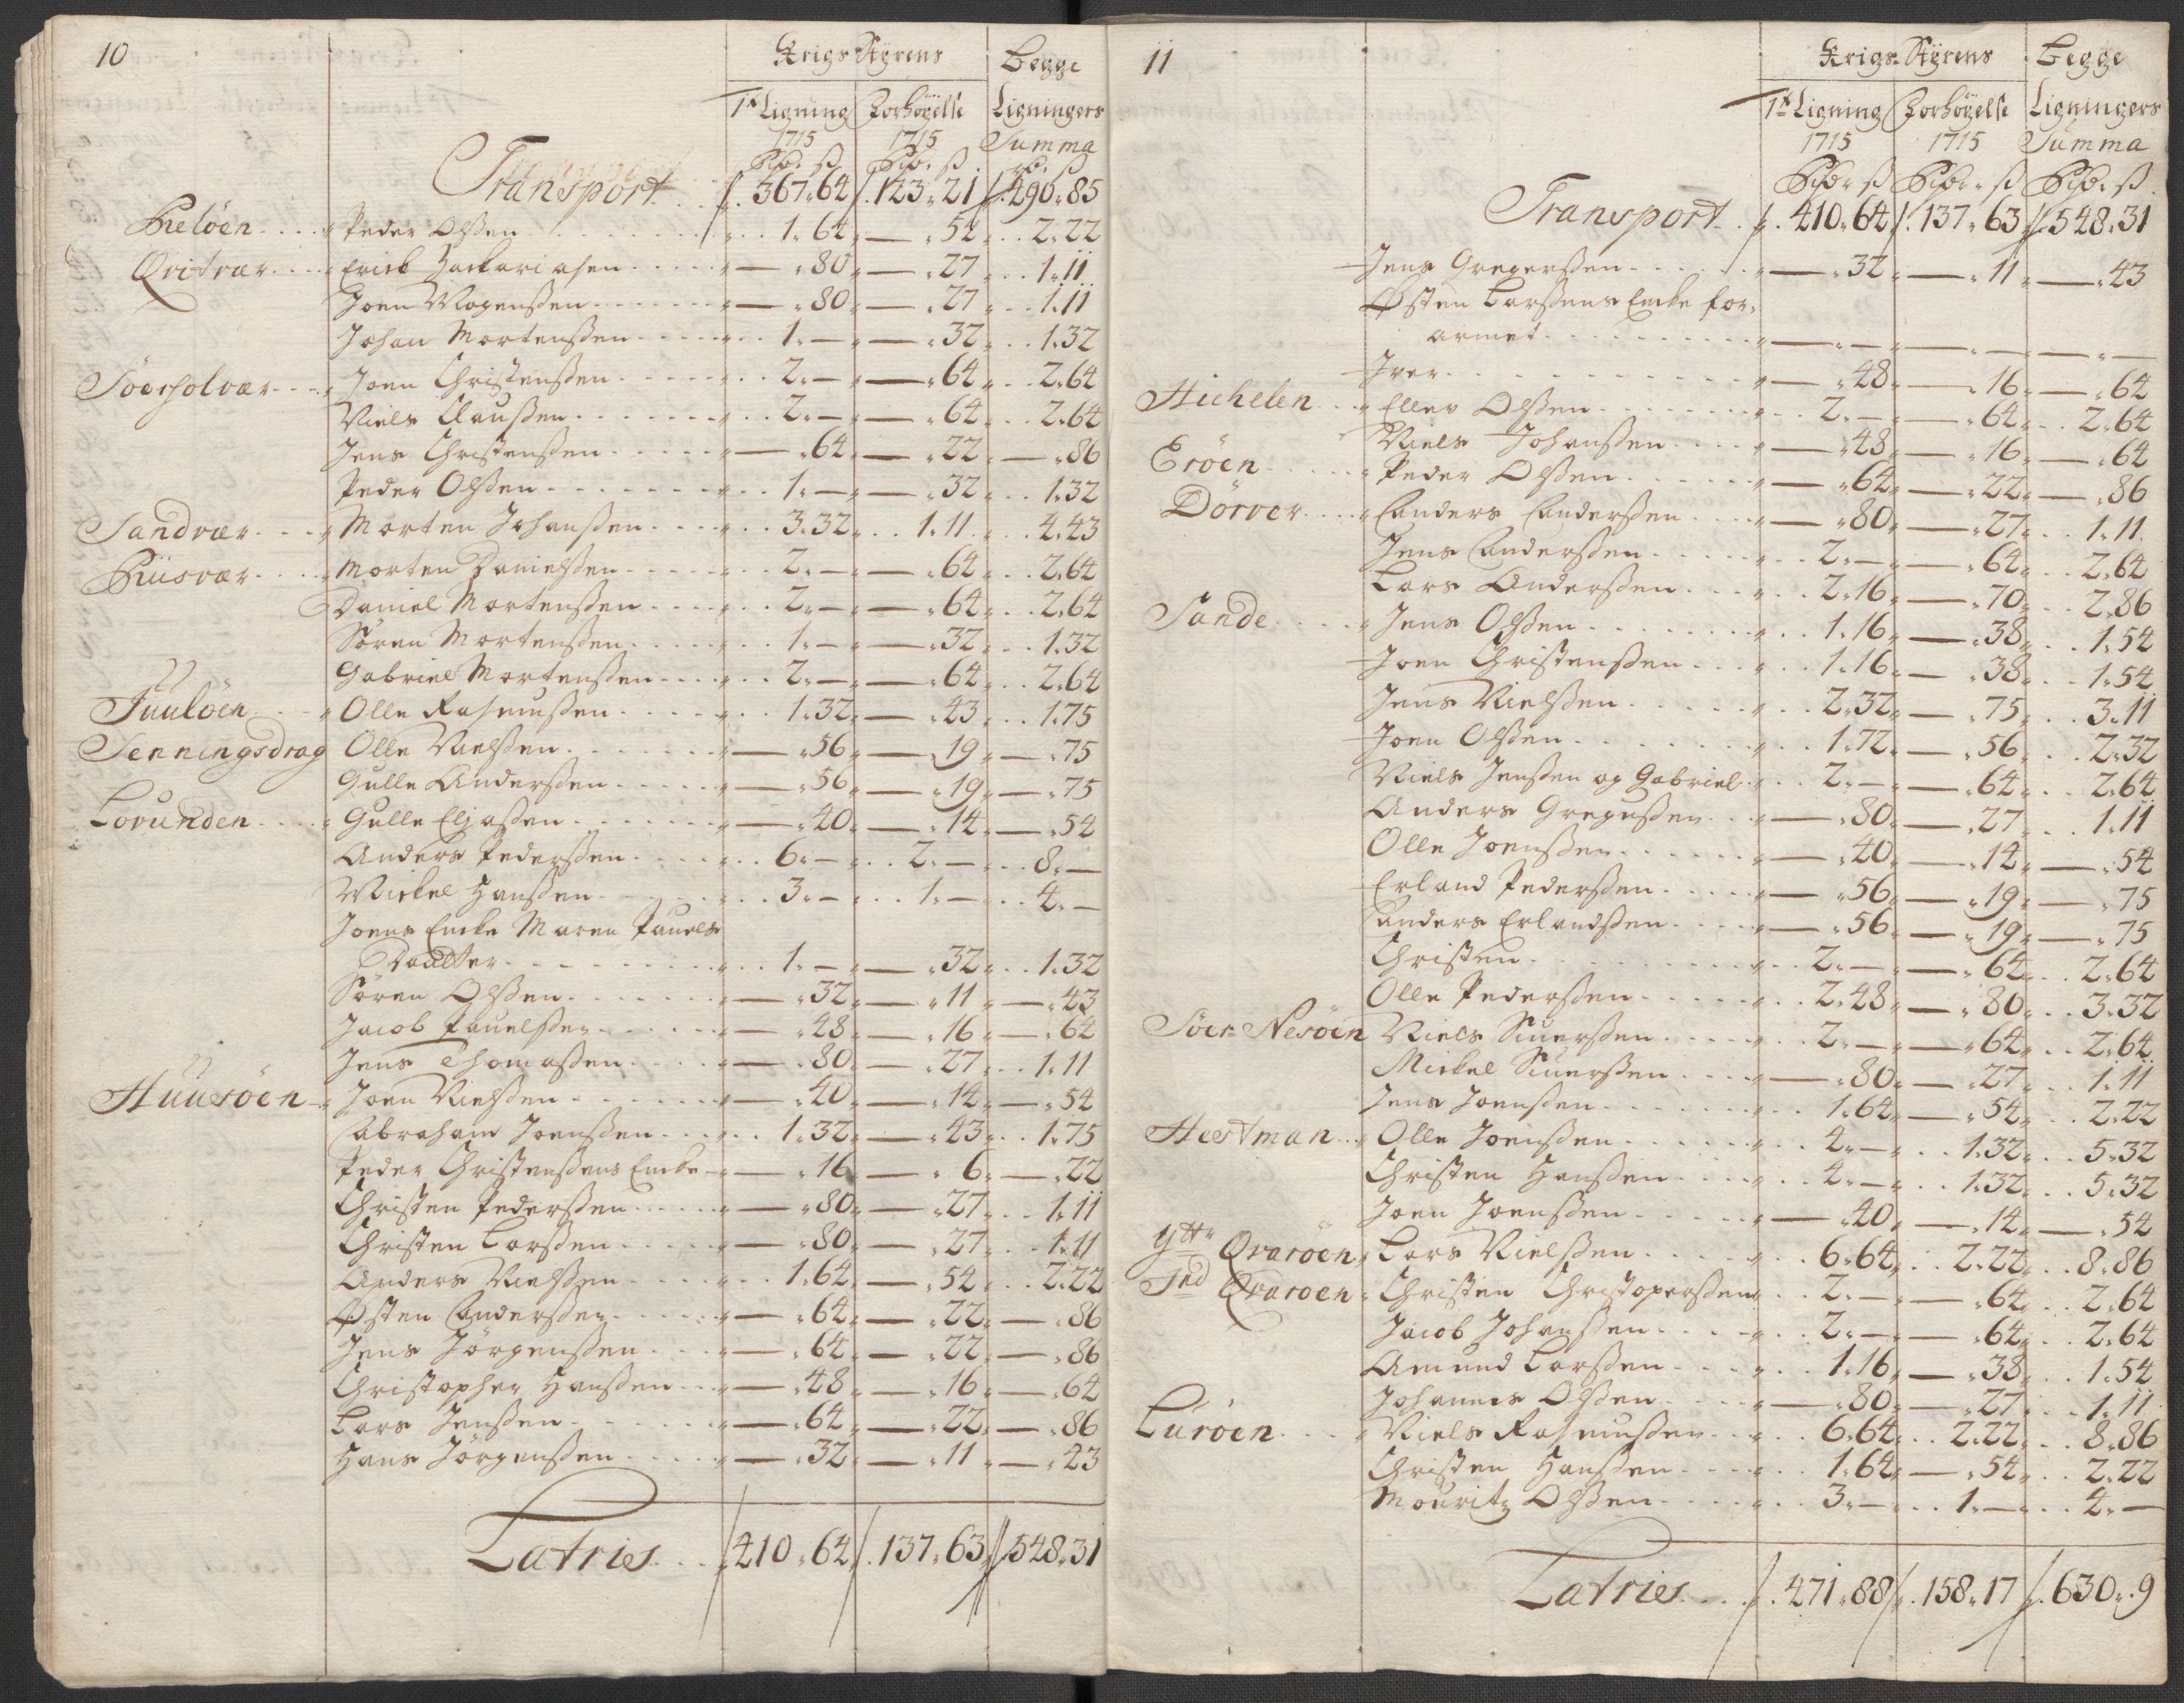 10
Krigs Styrens Begge
1te Ligning Forhöyelse Ligningers
1715 1715 Summa
Rdr. ß Rdr. ß rd. ß
Transport 367.64 123.21 490.85
Heröen Peder Olßen 1.64 — .54 2.22
Qvitvær Erick Zackariasen — .80 — .27 1.11
Joen Mogenßen — .80 — .27 1.11
Johan Mortenßen 1.— — .32 1.32
Söersolvær Joen Christenßen 2.— — .64 2.64
Niels Claußen 2.— — .64 2.64
Jens Christenßen — .64 — .22 — .86
Peder Olßen 1.— — .32 1.32
Sandvær Morten Johanßen 3.32 1.11 4.43
Huusvær Morten Danielßen 2.— — .64 2.64
Daniel Mortenßen 2.— — .64 2.64
Sören Mortenßen 1.— — .32 1.32
Gabriel Mortenßen 2.— — .64 2.64
Juulöen Olle Rasmußen 1.32 — .43 1.75
Senningsdrag Olle Nielßen — .56 — .19 — .75
Gulle Anderßen — .56 — .19 — .75
Lovunden Gulle Eliaßen — .40 — .14 — .54
Anders Pederßen 6.— 2.— 8.—
Mickel Hanßen 3.— 1.— 4.—
Joens Encke Maren Pauels
Daatter 1.— — .32 1.32
Sören Olßen — .32 — .11 — .43
Jacob Pauelßen — .48 — .16 — .64
Jens Thomaßen — .80 — .27 1.11
Huuesöen Joen Nielßen — .40 — .14 — .54
Abraham Joenßen 1.32 — .43 1.75
Peder Christenßens Encke — .16 — . 6 — .22
Christen Pederßen — .80 — .27 1.11
Christen Larßen — .80 — .27 1.11
Anders Nielßen 1.64 — .54 2.22
Østen Anderßen — .64 — .22 — .86
Jens Jörgenßen — .64 — .22 — .86
Christopher Hanßen — .48 — .16 — .64
Lars Jenßen — .64 — .22 — .86
Hans Jörgenßen — .32 — .11 — .43
Latries 410.64 137.63 548.31
11
Krigs Styrens Begge
1te Ligning Forhöyelse Ligningers
1715 1715 Summa
Rdr ß Rdr. ß Rdr. ß
Transport 410.64 137.63 548.31
Jens Gregerßen — .32 — .11 — .43
Østen Larßens Encke for-
armet — . — — . — — . —
Iver — .48 — .16 — .64
Hichelen Ellev Olßen 2.— — .64 2.64
Niels Johanßen — .48 — .16 — .64
Eröen Peder Olßen — .64 — .22 — .86
Dörver Anders Anderßen — .80 — .27 1.11
Jens Anderßen 2.— — .64 2.64
Lars Anderßen 2.16 — .70 2.86
Sande Jens Olßen 1.16 — .38 1.54
Joen Christenßen 1.16 — .38 1.54
Jens Nielßen 2.32 — .75 3.11
Joen Olßen 1.72 — .56 2.32
Niels Jenßen og Gabriel 2.— — .64 2.64
Anders Gregußen — .80 — .27 1.11
Olle Joenßen — .40 — .14 — .54
Erland Pederßen — .56 — .19 — .75
Anders Erlandßen — .56 — .19 — .75
Christen 2.— — .64 2.64
Olle Pederßen 2.48 — .80 3.32
Söer Nesöen Niels Siuerßen 2.— — .64 2.64
Mickel Siuerßen — .80 — .27 1.11
Jens Joenßen 1.64 — .54 2.22
Hestman Olle Joenßen 4.— 1.32 5.32
Christen Hanßen 4.— 1.32 5.32
Joen Joenßen — .40 — .14 — .54
Ytt Qvaroen Lars Nielßen 6.64 2.22 8.86
Ind Qvaroen Christen Christoperßen 2.— — .64 2.64
Jacob Johanßen 2.— — .64 2.64
Amund Larßen 1.16 — .38 1.54
Johannes Olßen — .80 — .27 1.11
Luröen Niels Rasmußen 6.64 2.22 8.86
Christen Hanßen 1.64 — .54 2.22
Mouritz Olßen 3.— 1.— 4.—
Latries 471.88 158.17 630.9